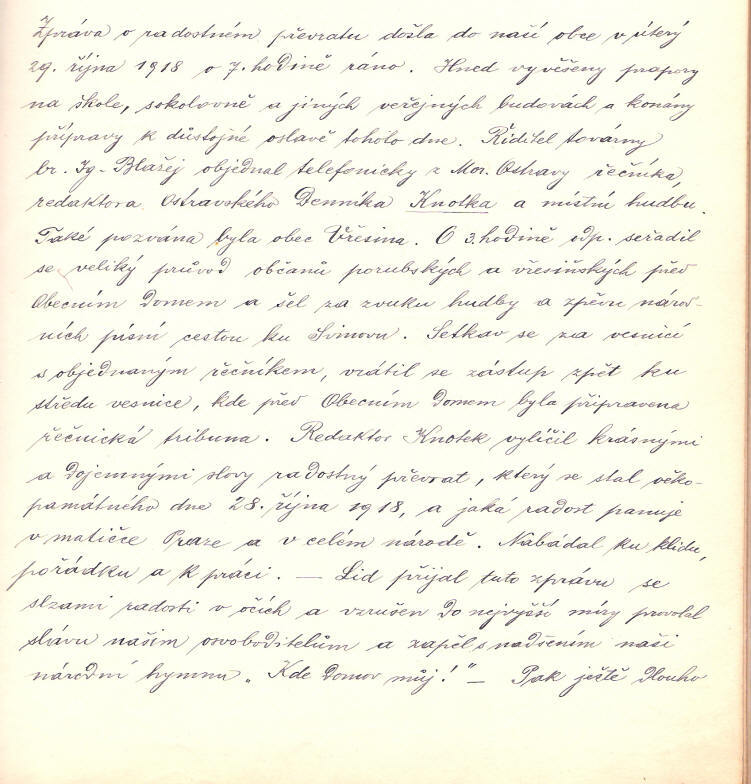 Zpráva o radostném převratu došla do naší obce v úterý
29. října 1918 o 7. hodině ráno. Hned vyvěšeny prapory
na škole, sokolovně a jiných veřejných budovách a konány
přípravy k důstojné oslavě tohoto dne. Řiditel továrny
br. Ig. Blažej objednal telefonicky z Mor. Ostravy řečníka,
redaktora Ostravského Denníka Knotka a místní hudbu.
Také pozvána byla obec Vřesina. O 3. hodině odp. seřadil
se veliký průvod občanů porubských a vřesiňských před
Obecním Domem a šel za zvuku hudby a zpěvu národ-
ních písní cestou ku Svinovu. Setkav se za vesnicí
s objednaným řečníkem, vrátil se zástup zpět ku
středu vesnice, kde před Obecním Domem byla připravena
řečnická tribuna. Redaktor Knotek vylíčil krásnými
a dojemnými slovy radostný převrat, který se stal věko-
památného dne 28. října 1918, a jaká radost panuje
v matičce Praze a v celém národě. Nabádal ku klidu,
pořádku a k práci. — Lid přijal tuto zprávu se
slzami radosti v očích a vzrušen do nejvyšší míry provolal
slávu našim osvoboditelům a zapěl s nadšením naši
národní hymnu „Kde Domov můj!" — Pak ještě dlouho